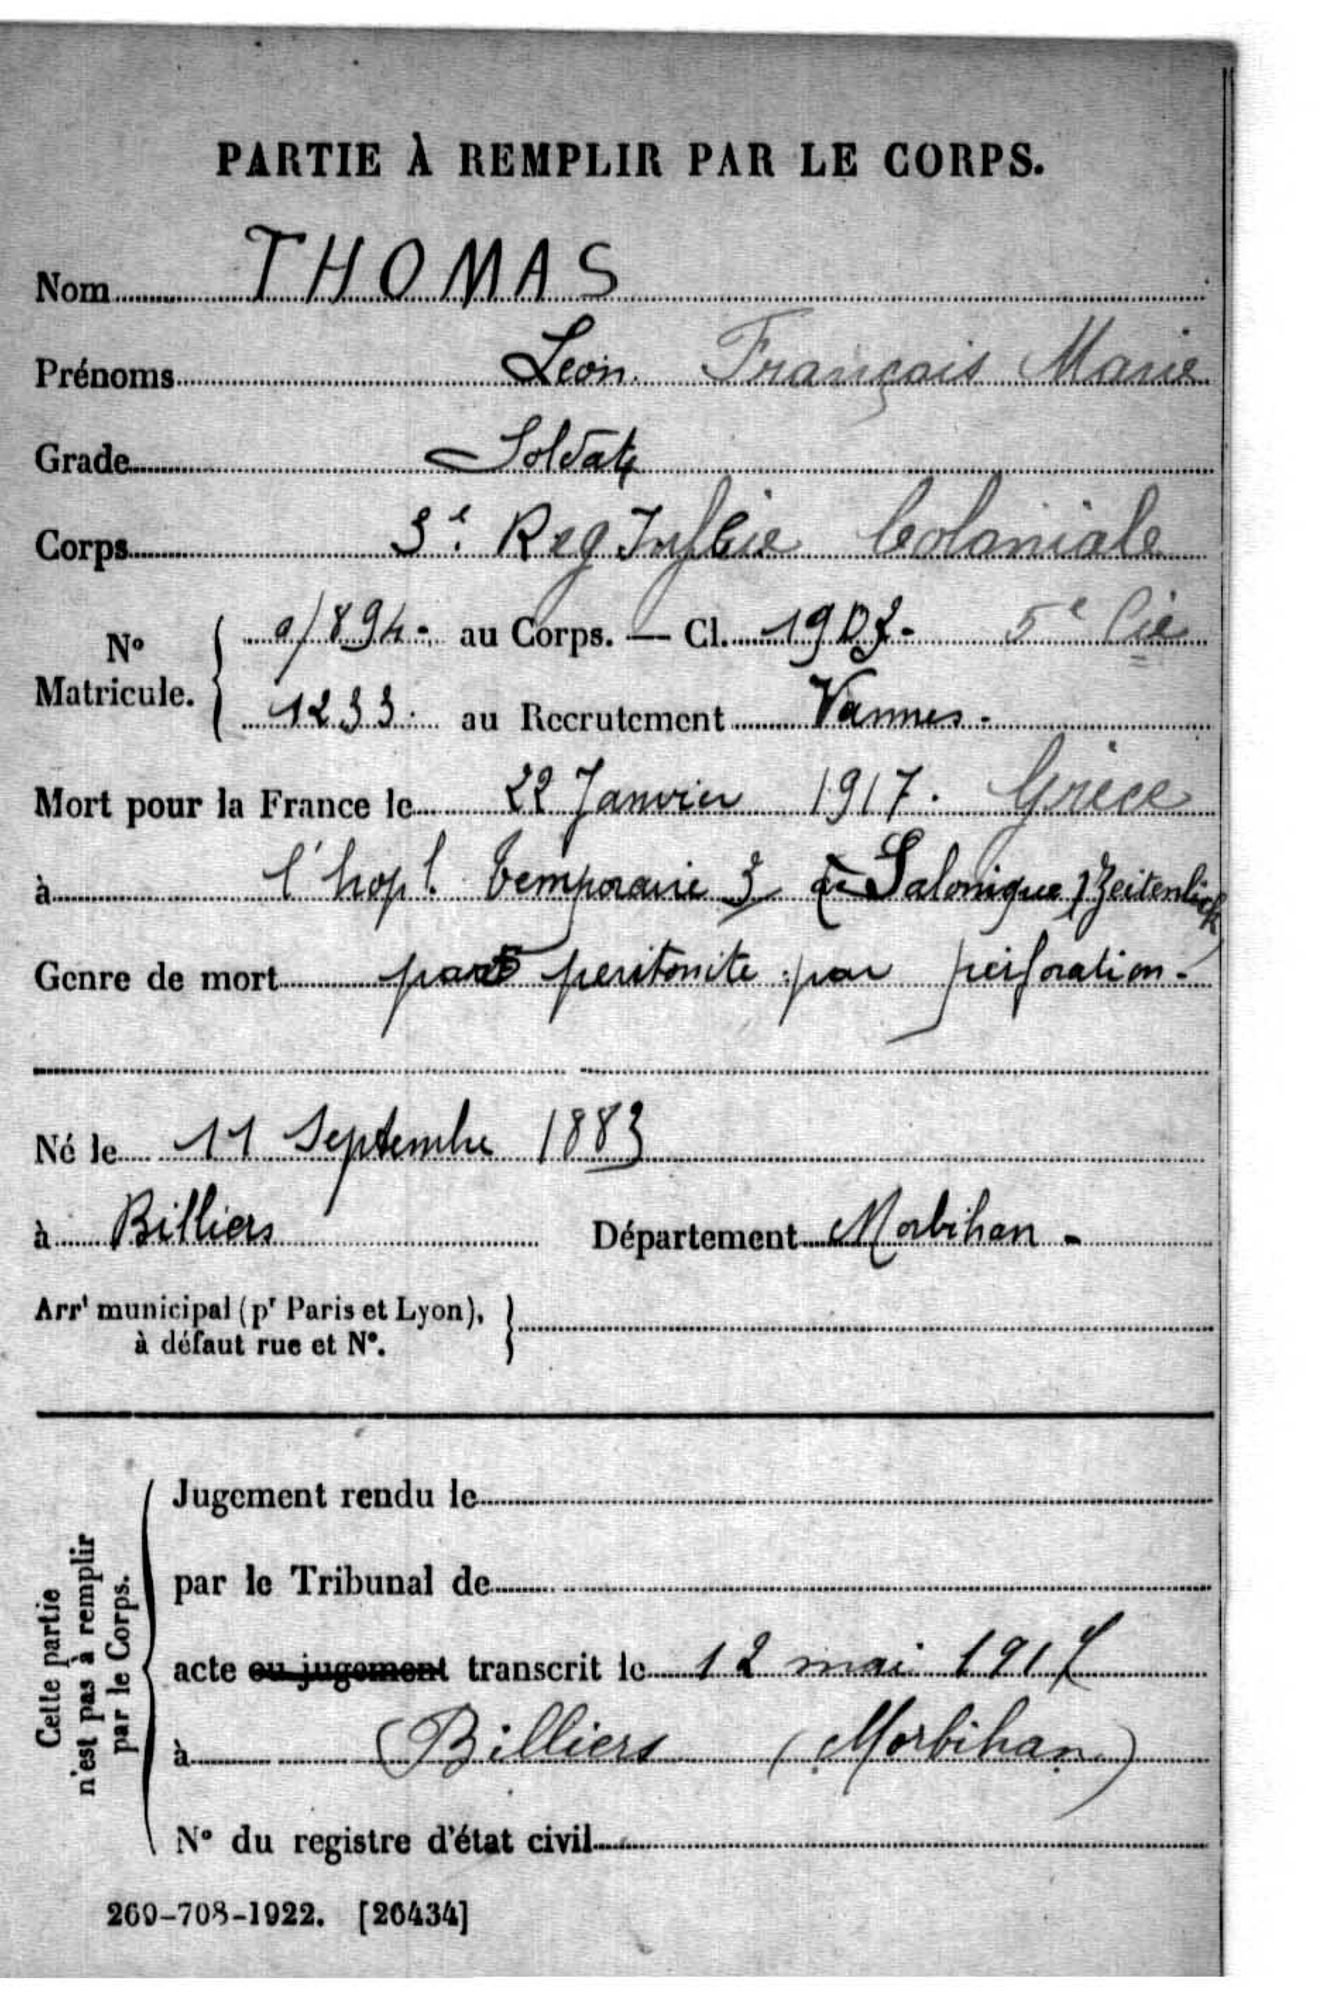 PARTIE À REMPLIR PAR LE CORPS.
Nom THOMAS
Prénoms Leon François Marie
Grade Soldat
Corps 3e Reg Inf Coloniale
No Matricule. 9/894 - au Corps. — Cl. 1903 - 5e Cie
1233. au Recrutement Vannes -
Mort pour la France le 22 Janvier 1917. Grèce
à l'hopl. temporaire 3 à Salonique (Zeitenlick)
Genre de mort peritonite par perforation -
Né le 11 Septembre 1883
à Billiers Département Morbihan -
Arrt municipal (pr Paris et Lyon),
à défaut rue et No.
Cette partie
n'est pas à remplir
par le Corps.
Jugement rendu le
par le Tribunal de
acte ou jugement transcrit le 12 mai 1917
à Billiers (Morbihan)
No du registre d'état civil
269-708-1922. [26434]